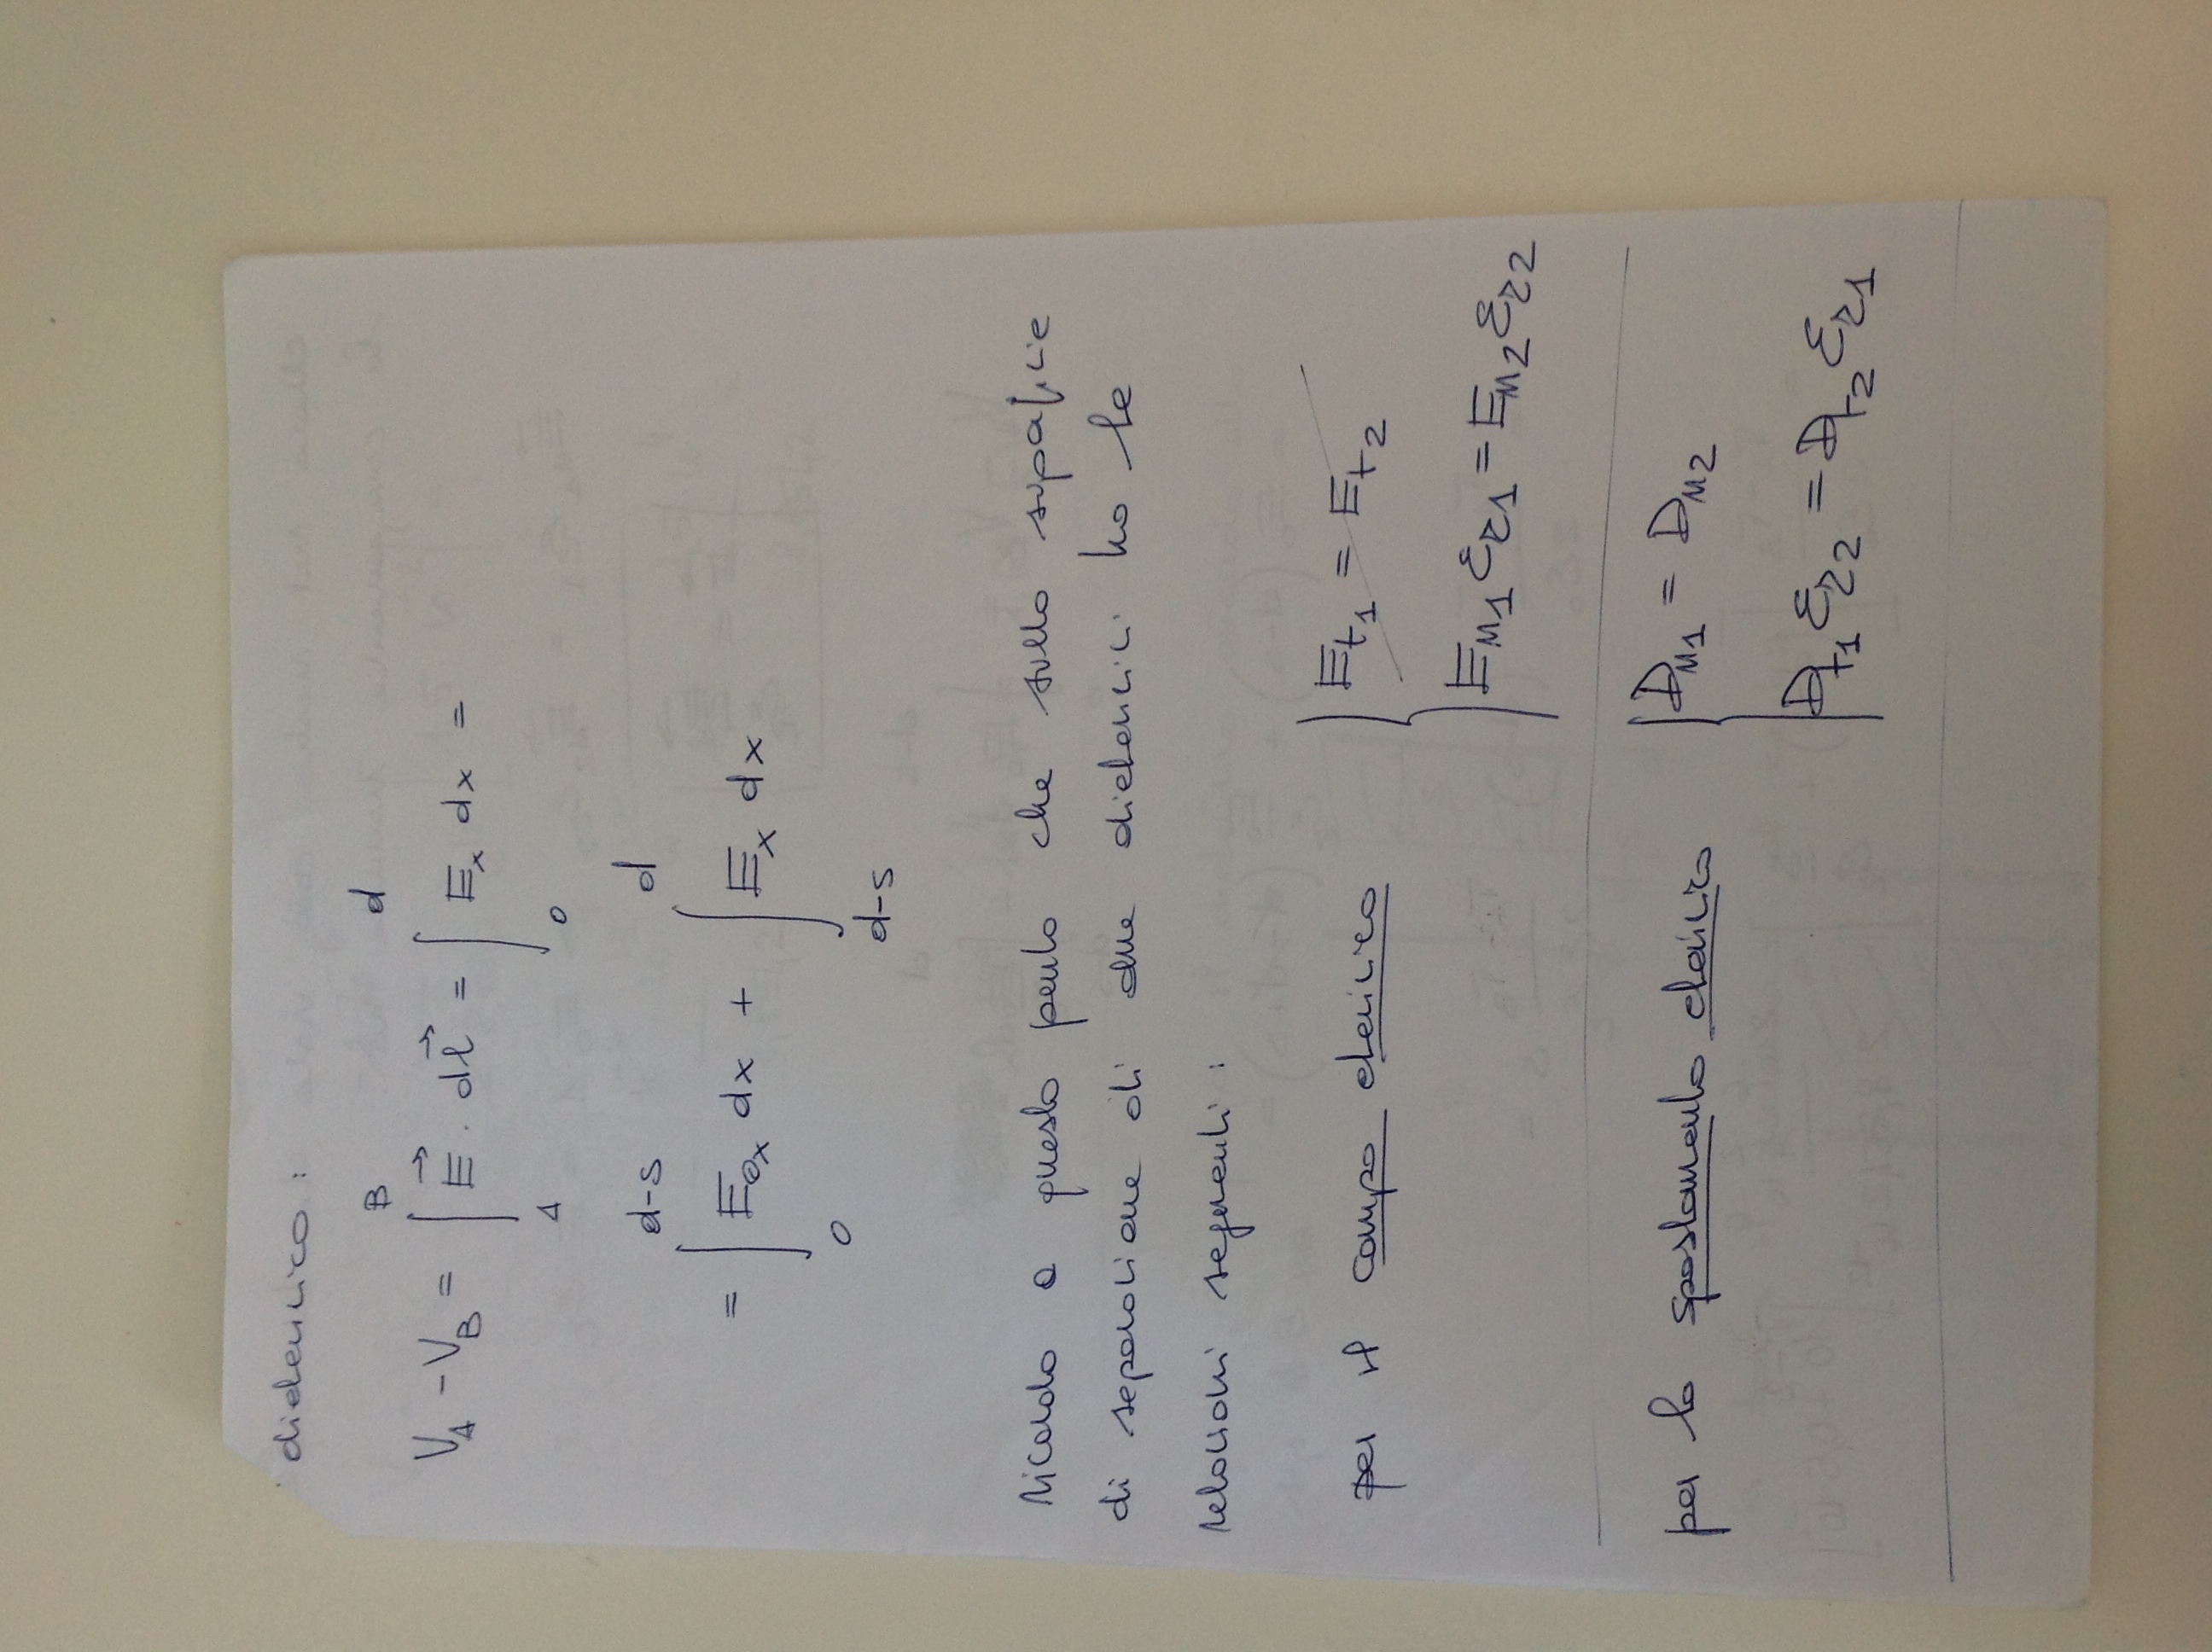 dielettrico :
V_A - V_B = ∫_A^B E⃗ · dl⃗ = ∫_0^d E_x dx =
= ∫_0^{d-s} E_{0x} dx + ∫_{d-s}^d E_x dx
ricordo a questo punto che sulla superficie
di separazione di due dielettrici ho le
relazioni seguenti :
per il campo elettrico { E_{t1} = E_{t2}
E_{n1} ε_{r1} = E_{n2} ε_{r2}
per lo spostamento elettrico { D_{n1} = D_{n2}
D_{t1} ε_{r2} = D_{t2} ε_{r1}